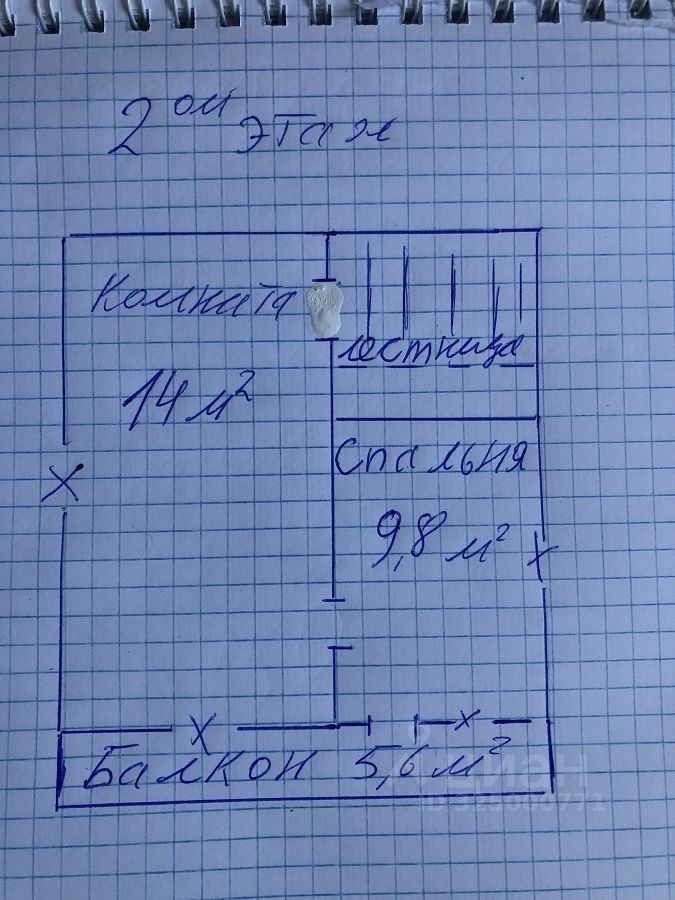 2 ом этаж
Комната
лестница
14 м²
Спальня
9,8 м²
X
X
X
X
Балкон 5,6 м²
циан
ID 325000771